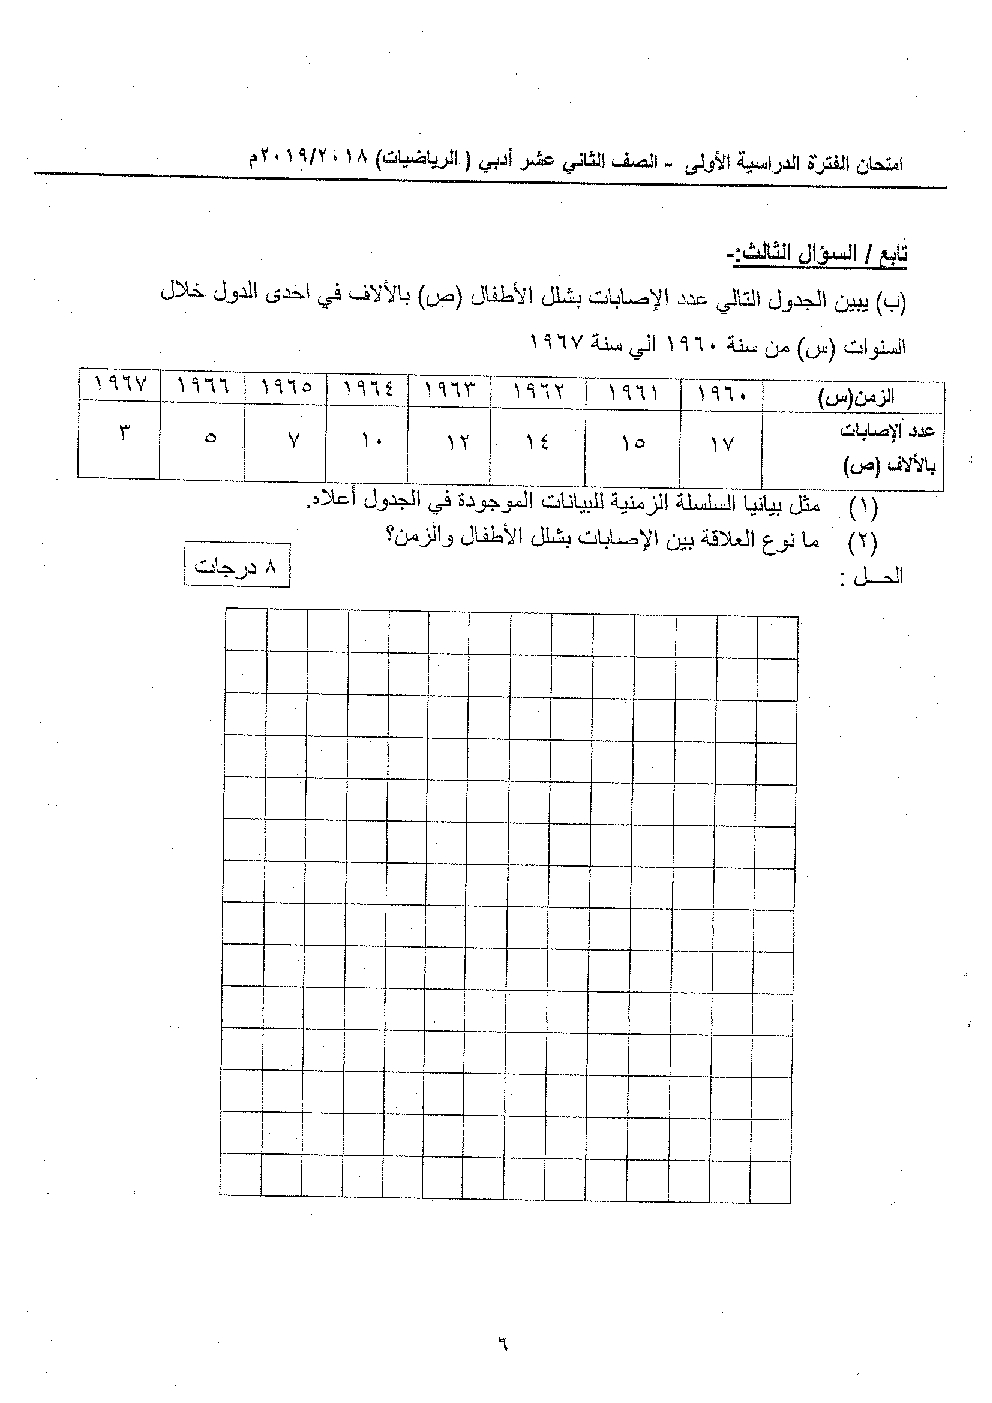 امتحان الفترة الدراسية الأولى - الصف الثاني عشر أدبي ( الرياضيات) ٢٠١٩/٢٠١٨م
تابع / السؤال الثالث:-
(ب) يبين الجدول التالي عدد الإصابات بشلل الأطفال (ص) بالآلاف في احدى الدول خلال
السنوات (س) من سنة ١٩٦٠ الي سنة ١٩٦٧
الزمن(س) ١٩٦٠ ١٩٦١ ١٩٦٢ ١٩٦٣ ١٩٦٤ ١٩٦٥ ١٩٦٦ ١٩٦٧
عدد الإصابات
بالآلاف (ص) ١٧ ١٥ ١٤ ١٢ ١٠ ٧ ٥ ٣
(١) مثل بيانيا السلسلة الزمنية للبيانات الموجودة في الجدول أعلاه.
(٢) ما نوع العلاقة بين الإصابات بشلل الأطفال والزمن؟
٨ درجات
الحـــل :
٦